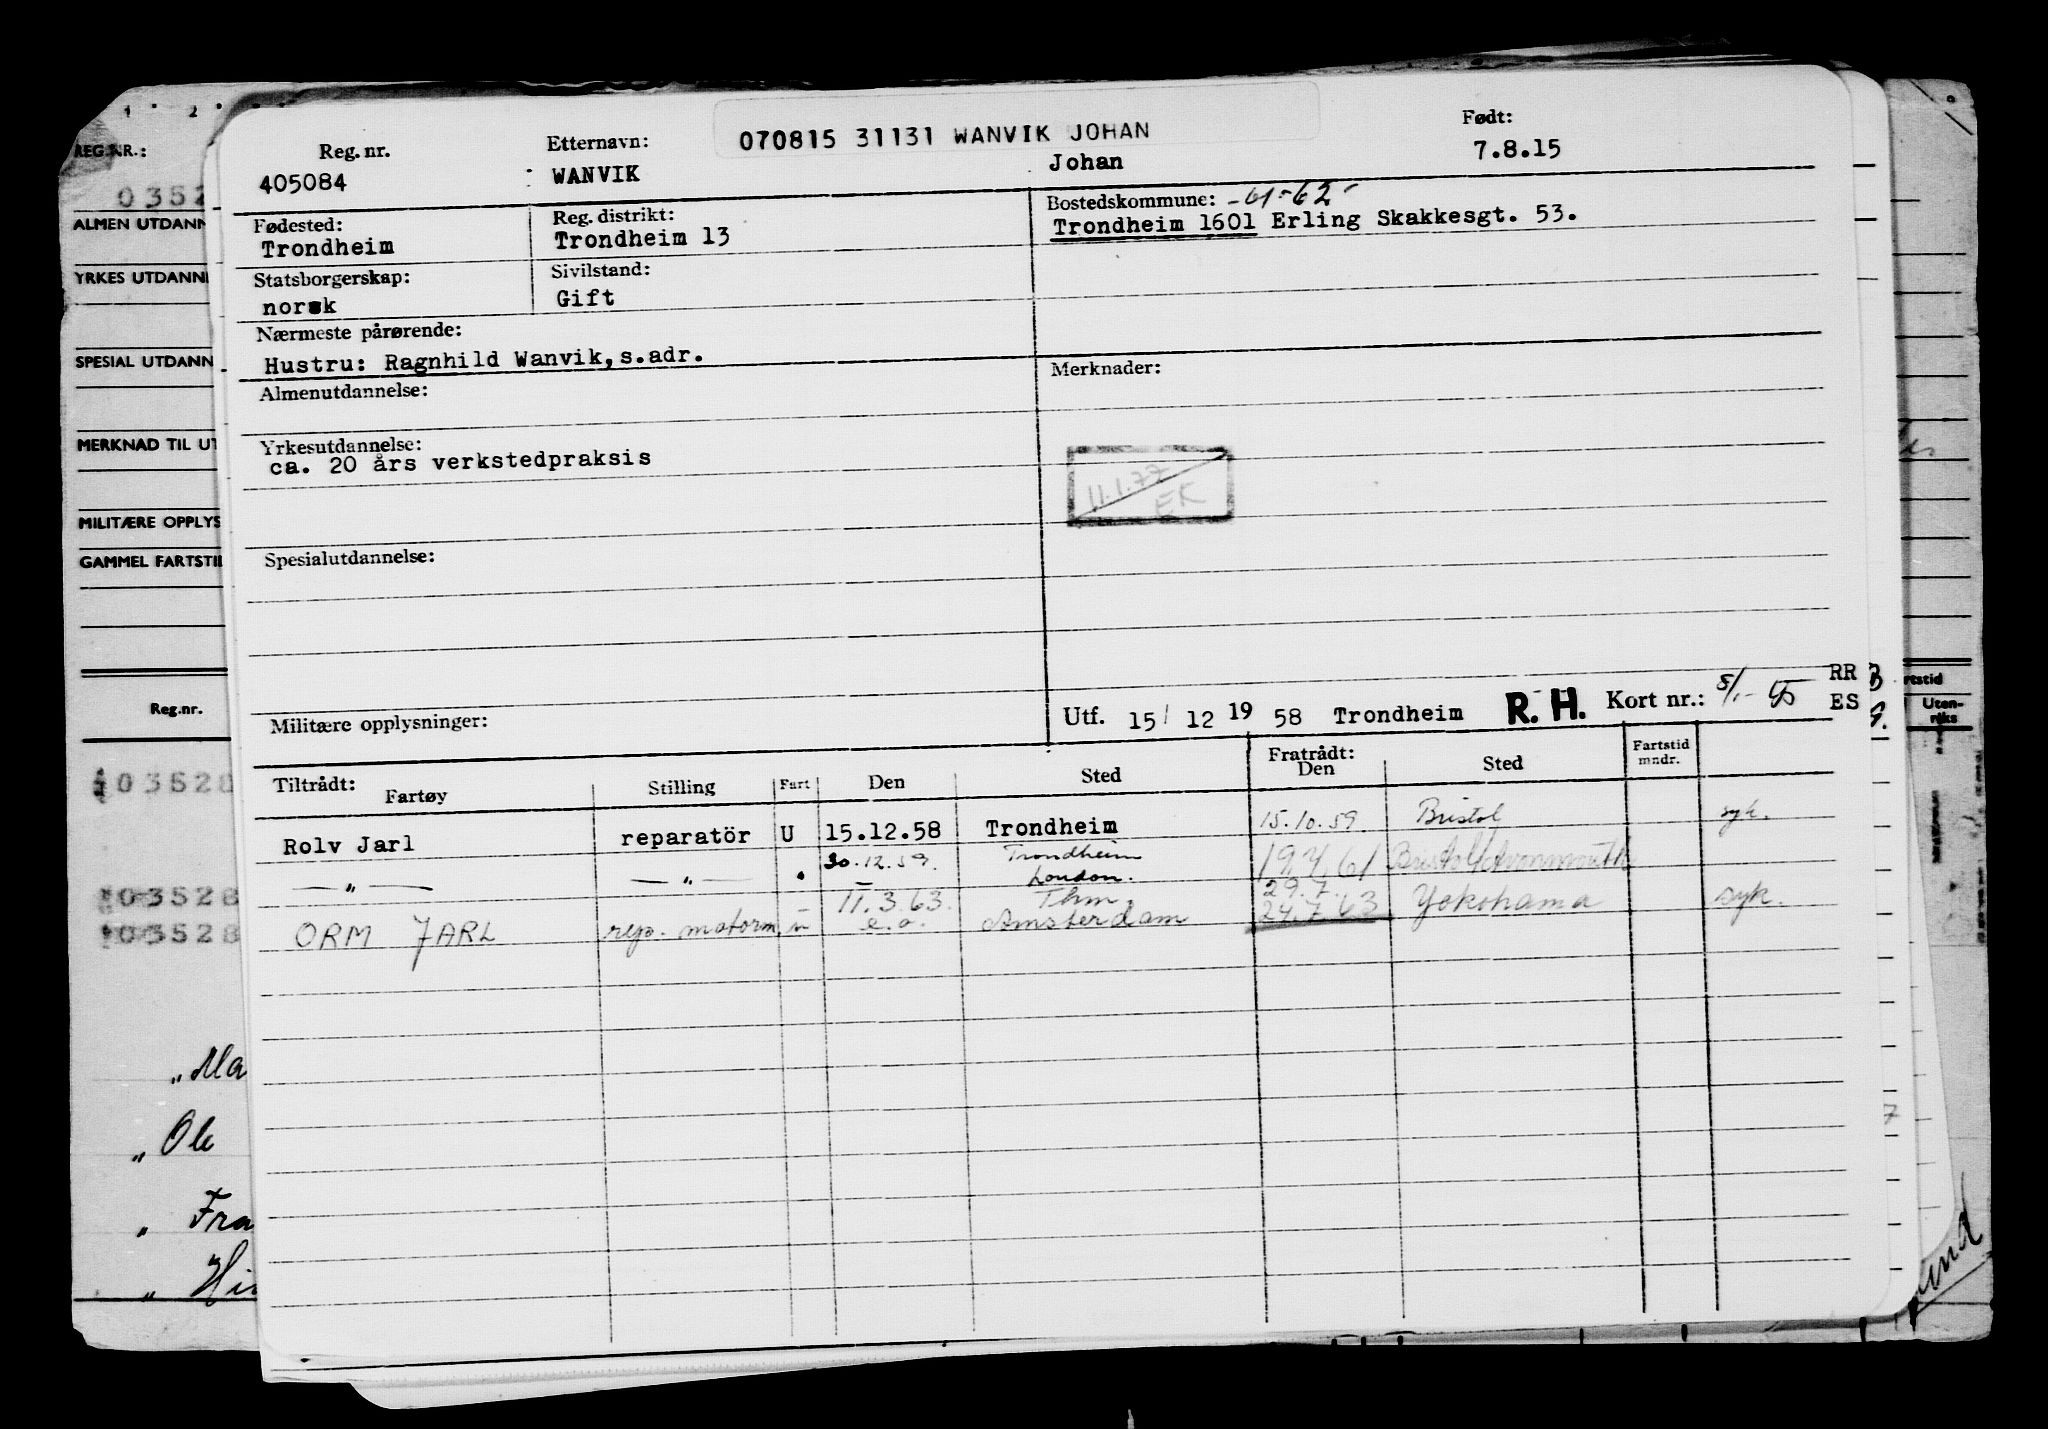 070815 31131 WANVIK JOHAN
Reg. nr. Etternavn: Født:
405084 WANVIK Johan 7.8.15
Fødested: Reg. distrikt: Bostedskommune: -61-62-
Trondheim Trondheim 13 Trondheim 1601 Erling Skakkesgt. 53.
Statsborgerskap: Sivilstand:
norsk Gift
Nærmeste pårørende:
Hustru: Ragnhild Wanvik, s.adr.
Almenutdannelse: Merknader:
Yrkesutdannelse:
ca. 20 års verkstedpraksis
11.1.77
EK
Spesialutdannelse:
Militære opplysninger: Utf. 15/ 12 19 58 Trondheim R. H. Kort nr.: RR
ES
Tiltrådt: Fartøy Stilling Fart Den Sted Fratrådt: Den Sted Fartstid mndr.
Rolv Jarl reparatör U 15.12.58 Trondheim 15.10.59 Bristol syk.
— " — — " — " 30.12.59. Trondheim
London. 19.4.61 Bristol/Avonmouth
11.3.63. Thm. 29.7.
ORM JARL rep. motorm. u e.o. Amsterdam 24.7.63 Yokohama syk.
REG.NR.:
0352
ALMEN UTDANN
YRKES UTDANN
SPESIAL UTDANN
MERKNAD TIL UT
MILITÆRE OPPLYS
GAMMEL FARTSTI
Reg.nr.
03528
03528
03528
" Ma
" Ole
" Fra
" Hi
rtstid
Uten-
riks